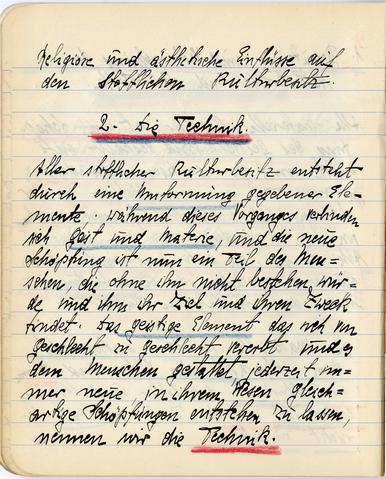 Religiöse und ästhetische Einflüsse auf
den Stofflichen Kulturbesitz.
2. Die Technik.
Aller stofflicher Kulturbesitz entsteht
durch eine Umformung gegebener Ele-
mente. Während dieses Vorganges verbinden
sich Geist und Materie, und die neue
Schöpfung ist nun ein Teil des Men-
schen, die ohne ihn nicht bestehen wür-
de und in ihm Ihr Ziel und Ihren Zweck
findet. Das geistige Element das sich von
Geschlecht zu Geschlecht vererbt und es
dem Menschen gestattet, jederzeit im-
mer neue in ihrem Wesen gleich-
artige Schöpfungen entstehen zu lassen,
nennen wir die Technik.